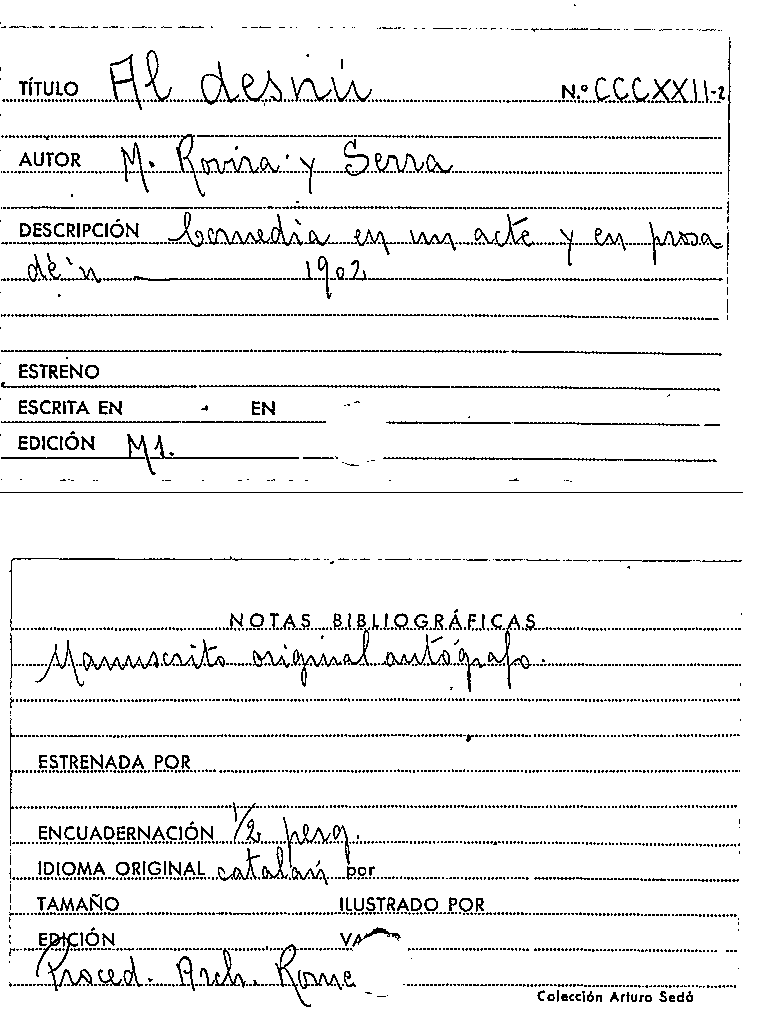 TÍTULO Al desnú N.º CCCXXII-2
AUTOR M. Rovira y Serra
DESCRIPCIÓN Comedia en un acte y en prosa
de'n 1902
ESTRENO
ESCRITA EN EN
EDICIÓN M1.
NOTAS BIBLIOGRÁFICAS
Manuscrito original autógrafo.
ESTRENADA POR
ENCUADERNACIÓN 1/2 perg.
IDIOMA ORIGINAL catalán por
TAMAÑO ILUSTRADO POR
EDICIÓN
Proced. Arch. Rome
Colección Arturo Sedó